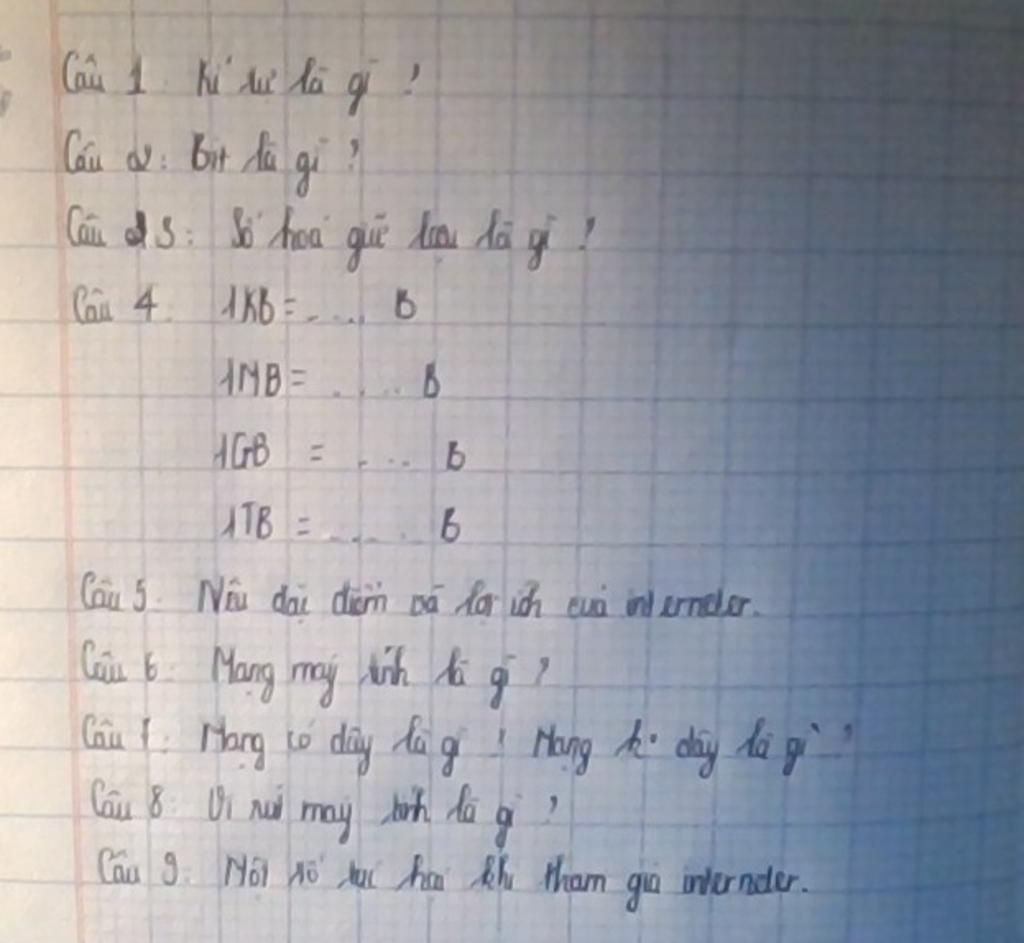 Câu 1. Kí tự là gì ?
Câu 2: Bit là gì ?
Câu 3: Số hoá giữ liệu là gì ?
Câu 4. 1KB = .... B
1MB = ..... B
1GB = .... B
1TB = ..... B
Câu 5. Nêu đặc điểm và lợi ích của internder.
Câu 6. Mạng máy tính là gì ?
Câu 7: Mạng có dây là gì ? Mạng k° dây là gì ?
Câu 8: Vi rút máy tính là gì ?
Câu 9: Một số tác hại khi tham gia internder.